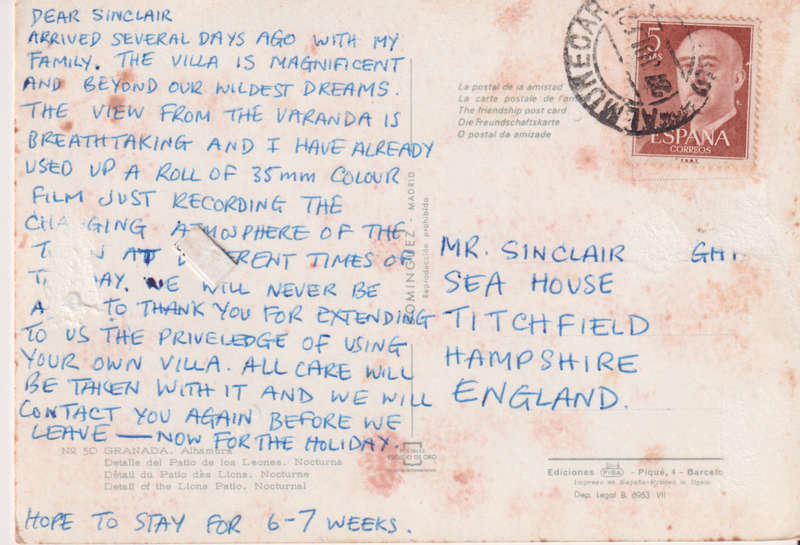 DEAR SINCLAIR
ARRIVED SEVERAL DAYS AGO WITH MY
FAMILY. THE VILLA IS MAGNIFICENT
AND BEYOND OUR WILDEST DREAMS.
THE VIEW FROM THE VARANDA IS
BREATHTAKING AND I HAVE ALREADY
USED UP A ROLL OF 35mm COLOUR
FILM JUST RECORDING THE
CHANGING ATMOSPHERE OF THE
AT TIMES OF
WE WILL NEVER BE
TO THANK YOU FOR EXTENDING
TO US THE PRIVELEDGE OF USING
YOUR OWN VILLA. ALL CARE WILL
BE TAKEN WITH IT AND WE WILL
CONTACT YOU AGAIN BEFORE WE
LEAVE — NOW FOR THE HOLIDAY.
Nº 50 GRANADA. Alhambra
Detalle del Patio de los Leones. Nocturna
Détail du Patio dès Lions. Nocturne
Detail of the Lions Patio. Nocturnal
HOPE TO STAY FOR 6-7 WEEKS.
DOMINGUEZ - MADRID
Reproducción prohibida
La postal de la amistad
La carte postale de l'am
The friendship post card
Die Freundschaftskarte
O postal da amizade
ALMUÑECAR
5
PTAS
ESPAÑA
CORREOS
F.N.M.T.
MR. SINCLAIR
SEA HOUSE
TITCHFIELD
HAMPSHIRE
ENGLAND.
Ediciones FISA - Piqué, 4 - Barcelo
Impreso en España-Printed in Spain
Dep. Legal B. 6963 VII